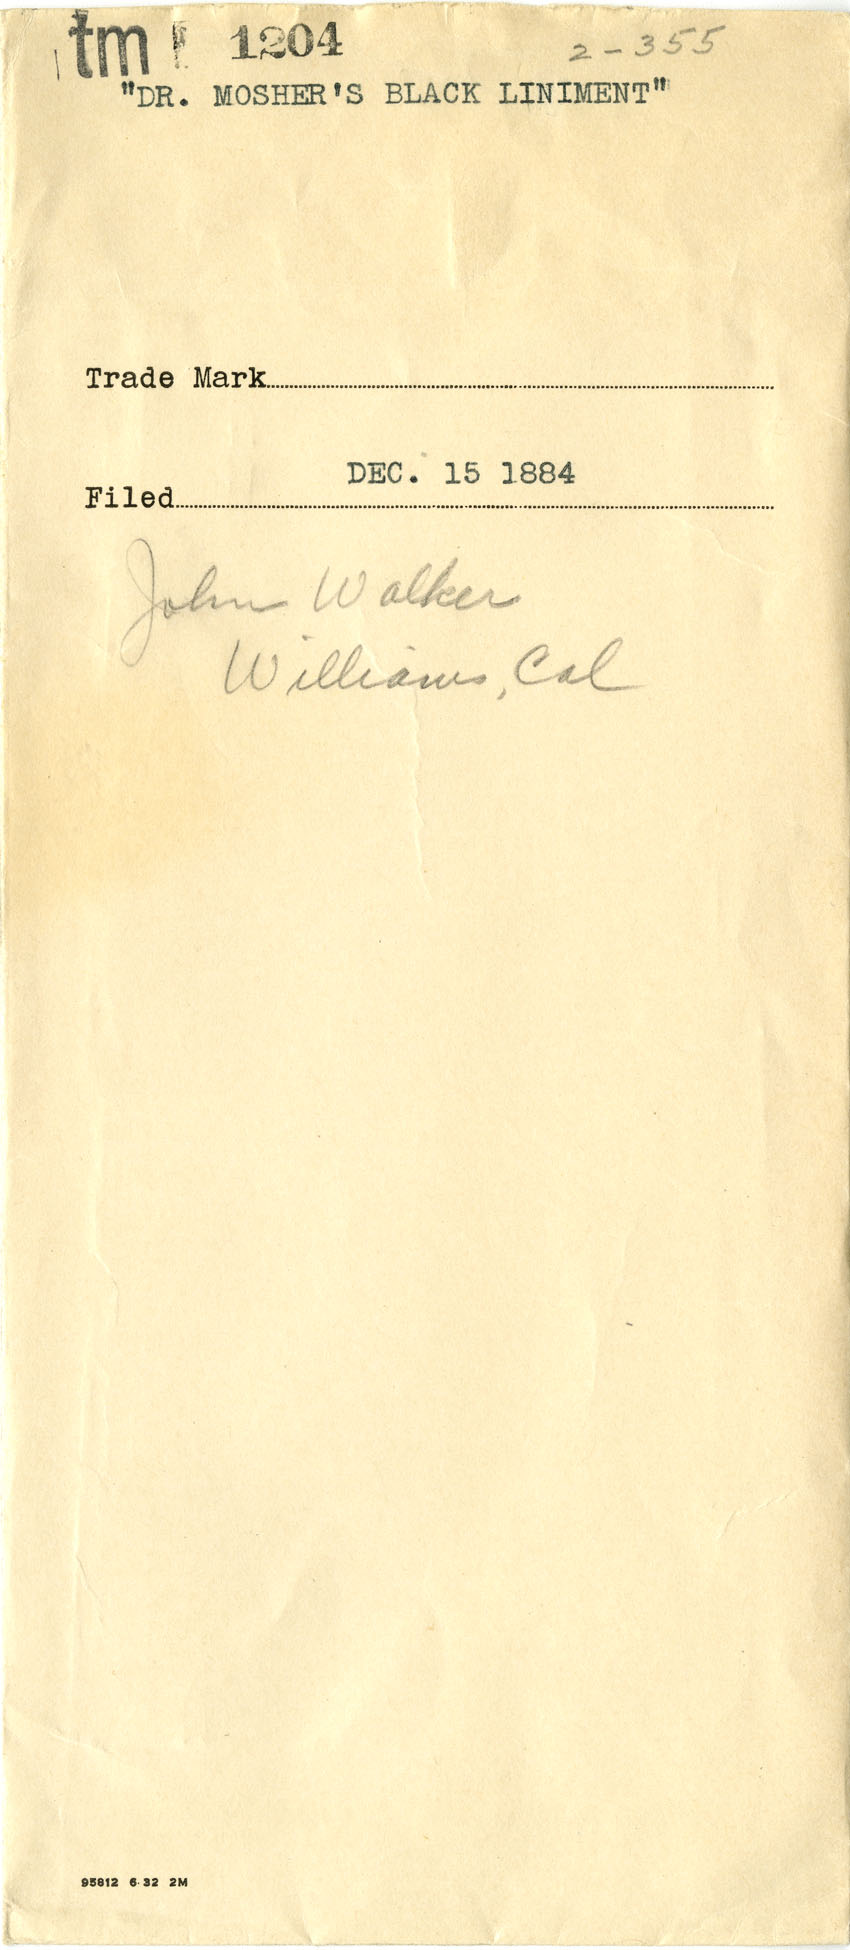 tm 1204 2-355
"DR. MOSHER'S BLACK LINIMENT"
Trade Mark
DEC. 15 1884
Filed
John Walker
Williams, Cal
95812 6-32 2M